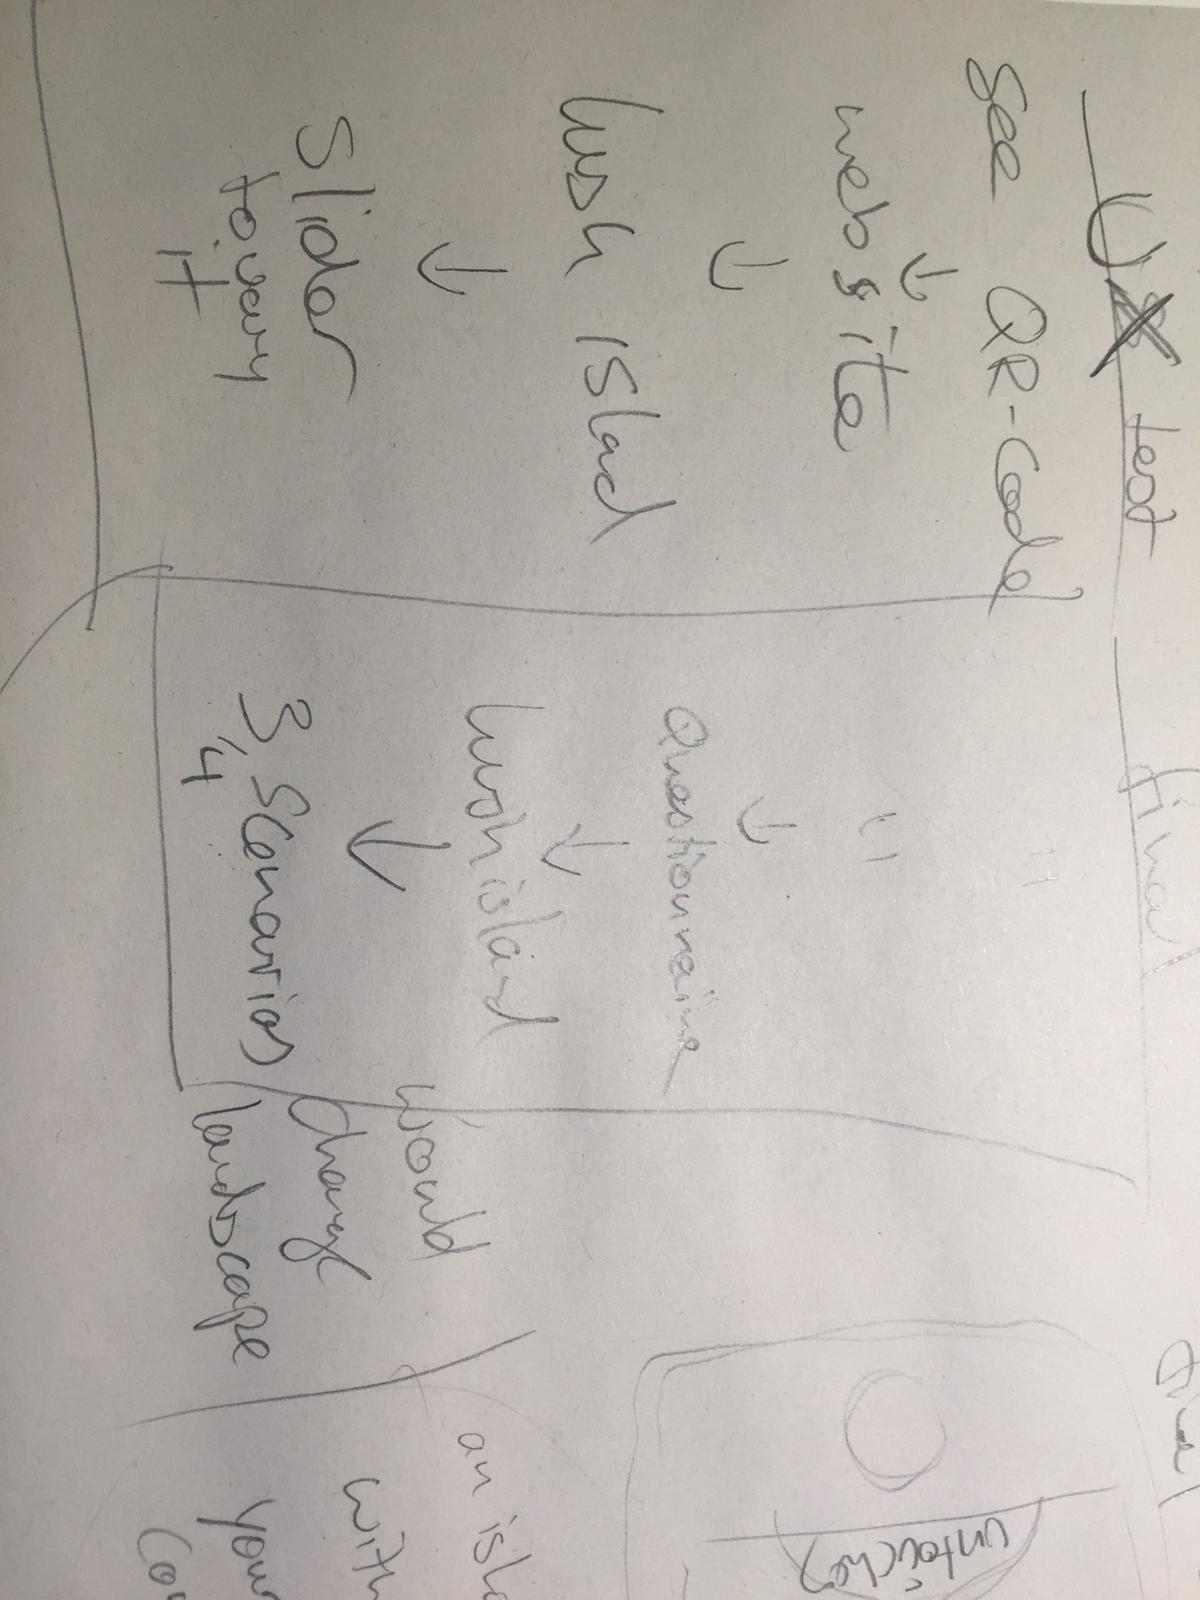 UX test
see QR-Code
↓
website
↓
lush island
↓
Slider
to vary
it
final
"
"
↓
Questionnaire
↓
lush island
↓
3,4 Scenarios
would
change
landscape
untouched
an isla
with
your